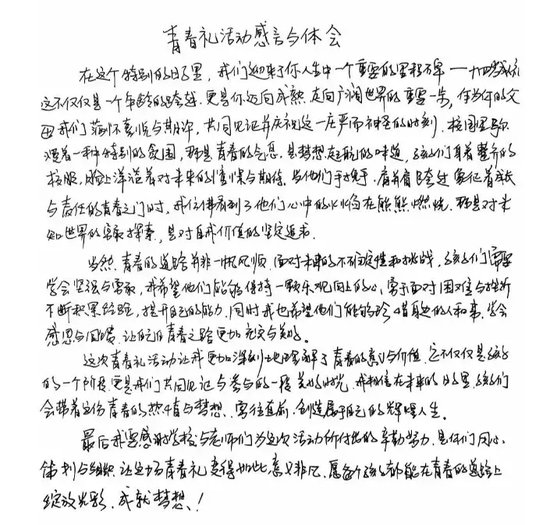 青春礼活动感言与体会
在这个特别的日子里，我们迎来了你人生中一个重要的里程碑——十四岁成
这不仅仅是一个年龄的跨越，更是你迈向成熟、走向广阔世界的重要一步，作为你的父
母我们满怀喜悦与期许，共同见证并庆祝这一庄严而神圣的时刻，校园里弥
漫着一种特别的氛围，那是青春的气息，是梦想起航的味道，孩子们身着整齐的
校服，脸上洋溢着对未来的憧憬与期待，当他们手挽手，肩并肩跨过象征着成长
与责任的青春之门时，我仿佛看到了他们心中的火焰在熊熊燃烧，那是对未
知世界的勇敢探索，是对自我价值的坚定追求。
当然，青春的道路并非一帆风顺，面对未来的不确定性和挑战，孩子们需要
学会坚强与勇敢，我希望他们能够保持一颗乐观向上的心，勇于面对困难与挫折
不断积累经验，提升自己的能力，同时我也希望他们能够珍惜身边的人和事，学会
感恩与回馈，让自己的青春之路更加充实与美好。
这次青春礼活动让我更加深刻地理解了青春的真义与价值，它不仅仅是孩子
的一个阶段，更是我们共同见证与参与的一段美好时光，我相信在未来的日子里，孩子们
会带着这份青春的热情与梦想、勇往直前，创造属于自己的辉煌人生。
最后我要感谢学校与老师们为这次活动所付出的辛勤努力，是你们用心
策划与组织，让这场青春礼变得如此意义非凡，愿每个孩子都能在青春的道路上
绽放光彩，成就梦想、！